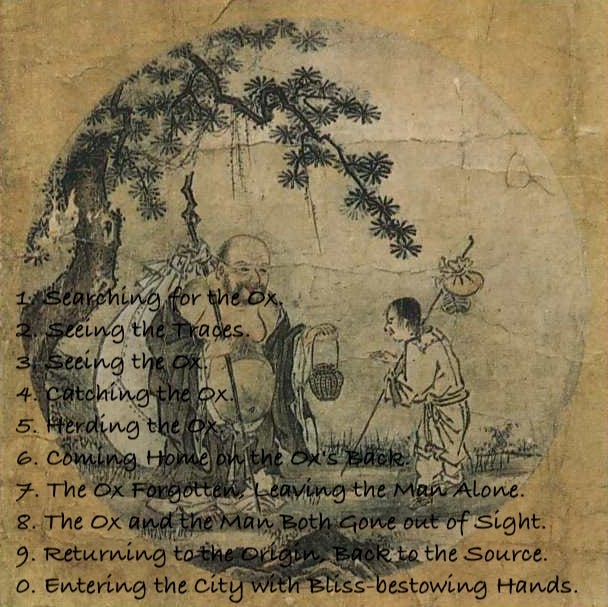 1. Searching for the Ox.
2. Seeing the Traces.
3. Seeing the Ox.
4. Catching the Ox.
5. Herding the Ox.
6. Coming Home on the Ox's Back.
7. The Ox Forgotten, Leaving the Man Alone.
8. The Ox and the Man Both Gone out of Sight.
9. Returning to the Origin, Back to the Source.
0. Entering the City with Bliss-bestowing Hands.